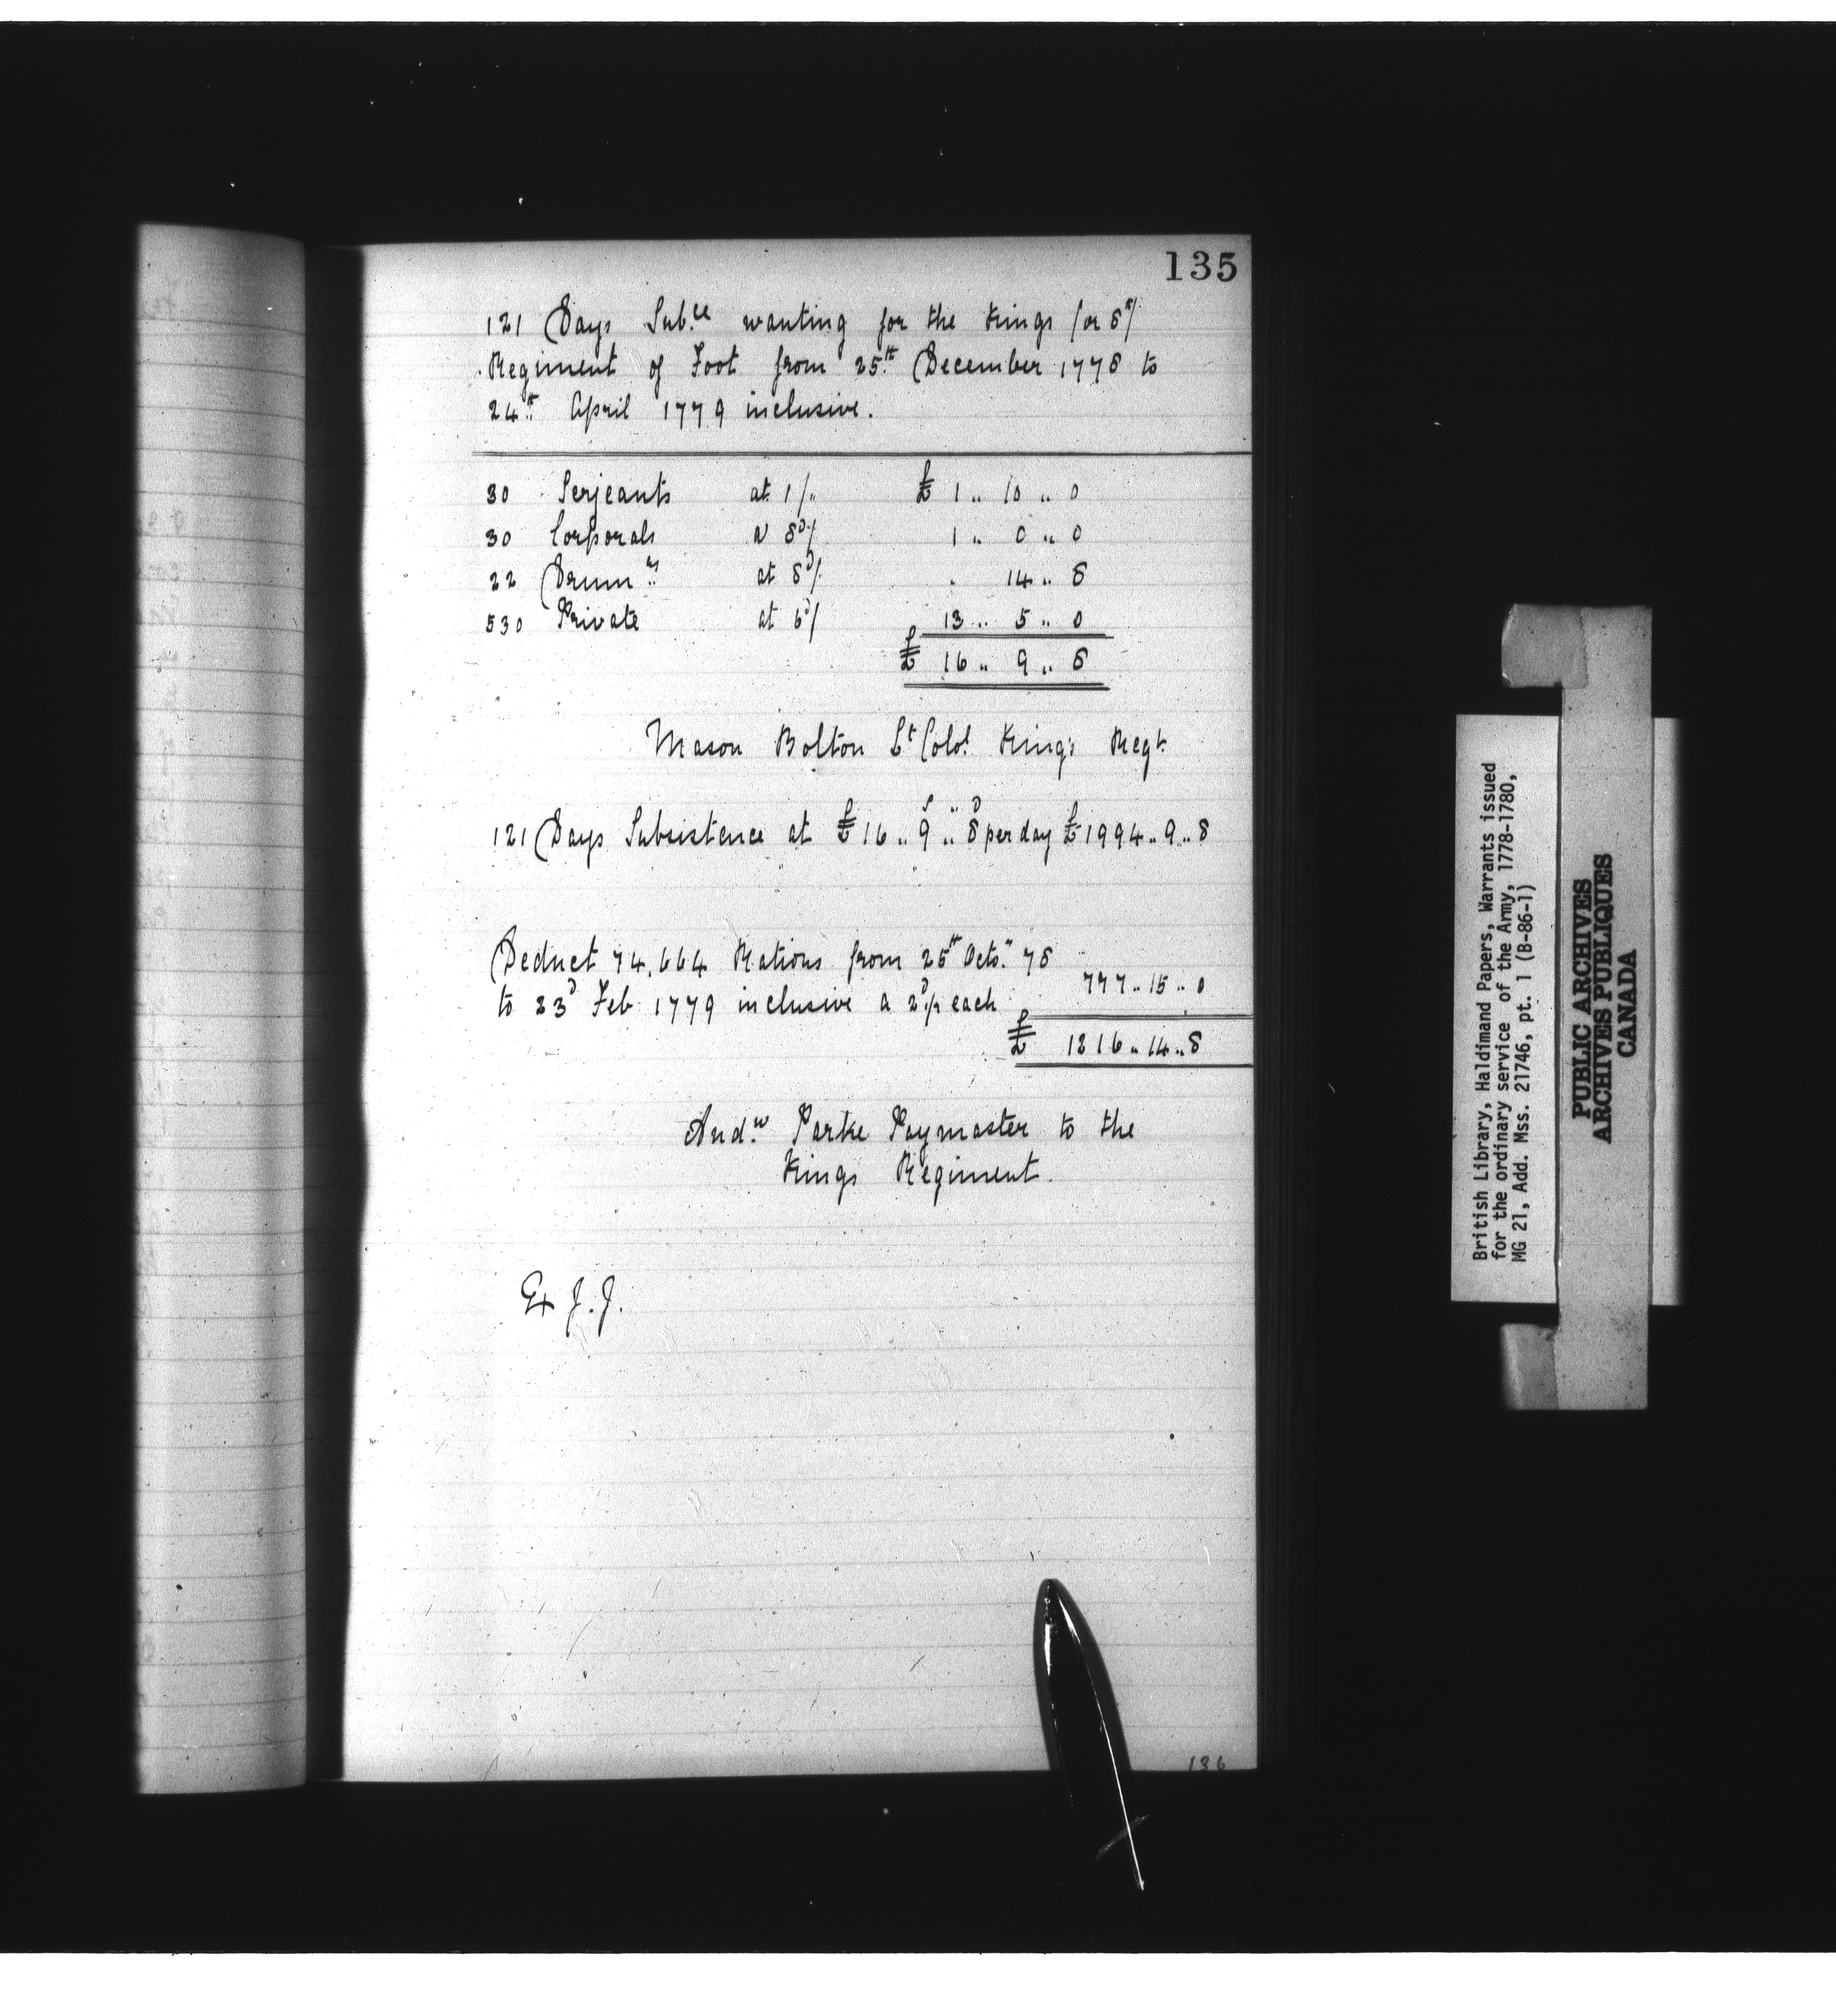 135
121 Days Sub.ce wanting for the Kings (or 8th)
Regiment of Foot from 25th December 1778 to
24th April 1779 inclusive.
30 Serjeants at 1/" £ 1 .. 10 .. 0
30 Corporals a 8D/ 1 .. 0 .. 0
22 Drumrs at 8D/ " 14 .. 8
530 Private at 6D/ 13 .. 5 .. 0
£ 16 .. 9 .. 8
Mason Bolton Lt Colol. King's Regt.
121 Days Subsistence at £16 .. 9S .. 8D per day £1994 .. 9 .. 8
Deduct 74,664 Rations from 25th Octor 78
to 23D Feb 1779 inclusive a 2D½ each 777 .. 15 .. 0
£ 1216 .. 14 .. 8
Andw Parke Paymaster to the
Kings Regiment.
Ex J.J.
136
British Library, Haldimand Papers, Warrants issued
for the ordinary service of the Army, 1778-1780,
MG 21, Add. Mss. 21746, pt. 1 (B-86-1)
PUBLIC ARCHIVES
ARCHIVES PUBLIQUES
CANADA